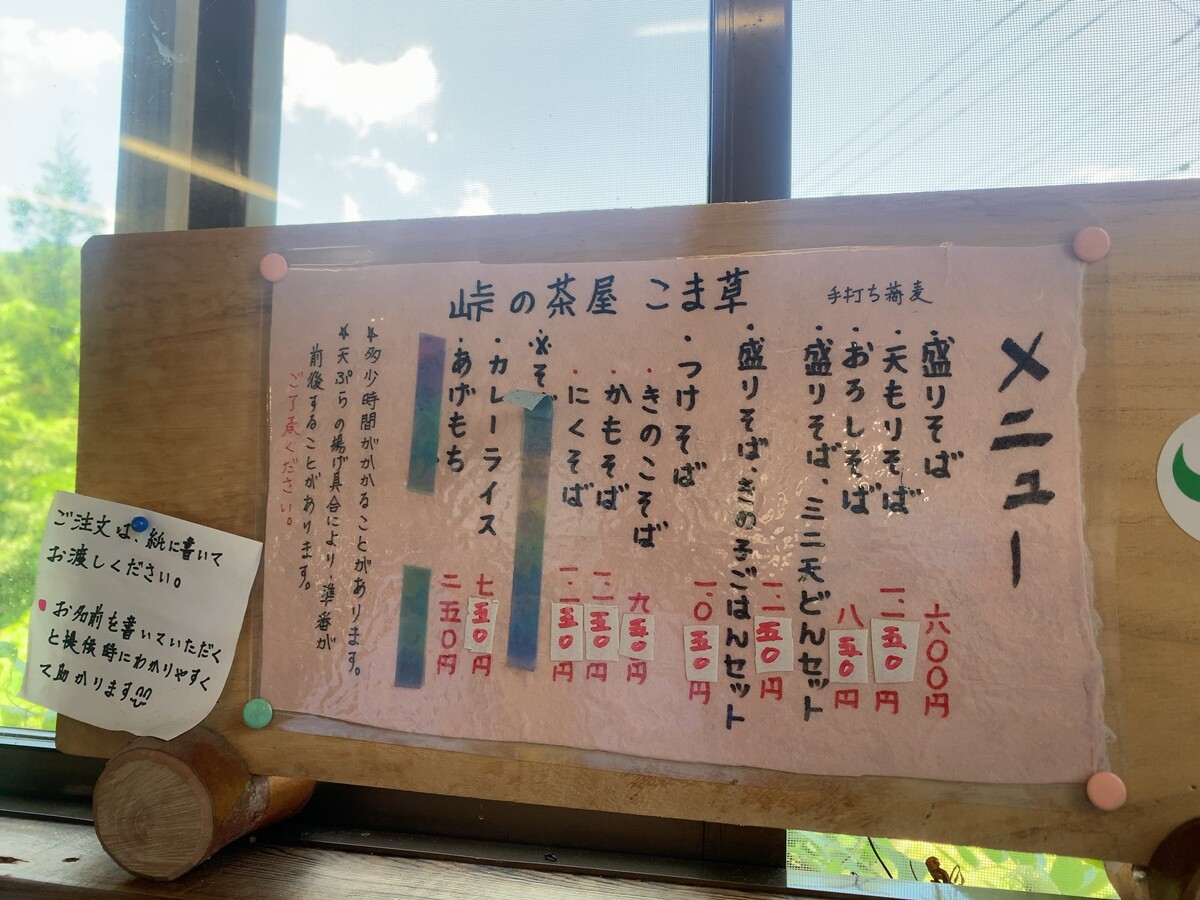 メニュー
手打ち蕎麦
峠の茶屋 こま草
・盛りそば 六〇〇円
・天もりそば 一、二五〇円
・おろしそば 八五〇円
・盛りそば、ミニ天どんセット 一、二五〇円
・盛りそば、きの子ごはんセット 一、〇五〇円
・つけそば
・きのこそば 九五〇円
・かもそば 一、二五〇円
・にくそば 一、一五〇円
・※そ
・カレーライス 七五〇円
・あげもち 二五〇円
*多少時間がかかることがあります。
*天ぷらの揚げ具合により、準番が
前後することがあります。
ご了承ください。
ご注文は、紙に書いて
お渡しください。
お名前を書いていただく
と提供時にわかりやすく
て助かります